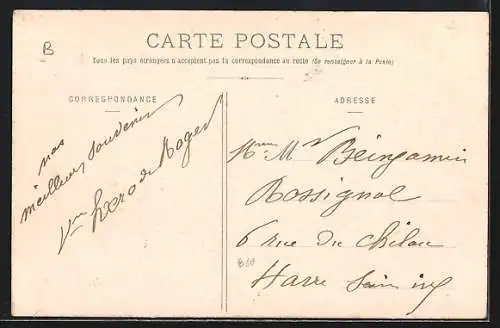 B
CARTE POSTALE
Tous les pays étrangers n'acceptent pas la correspondance au recto (Se renseigner à la Poste)
CORRESPONDANCE
nos
meilleurs souvenirs
Roger
ADRESSE
Mr
Rossignol
6 rue du
Havre